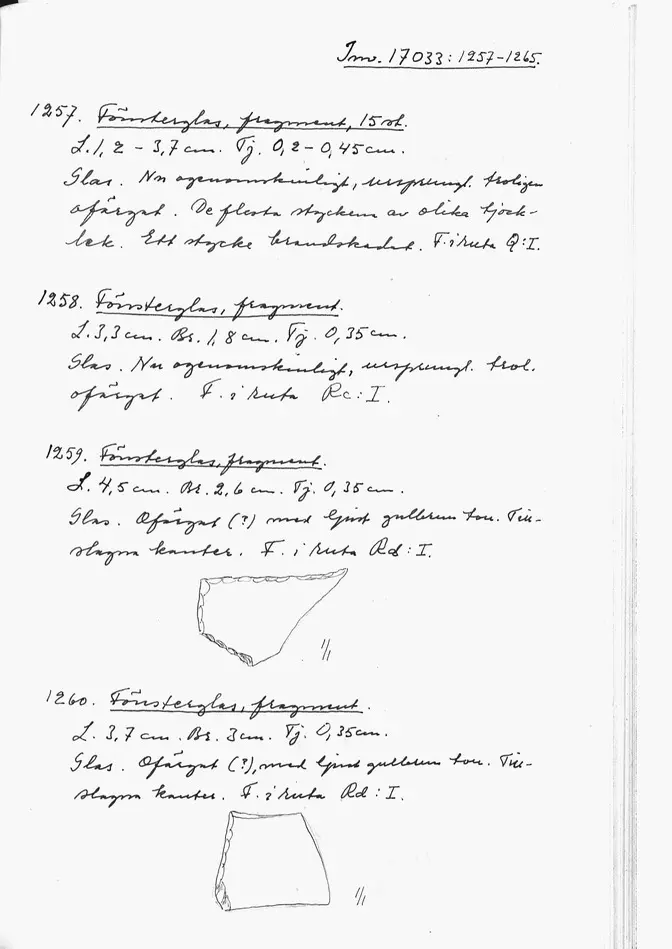 Inv. 17033:1257-1265.
1257. Fönsterglas, fragment, 15 st.
L. 1,2 - 3,7 cm. Tj. 0,2 - 0,45 cm.
Glas. Nu ogenomskinligt, ursprungl. troligen
ofärgat. De flesta styckena av olika tjock-
lek. Ett stycke brandskadat. F. i ruta Q:I.
1258. Fönsterglas, fragment.
L. 3,3 cm. Br. 1,8 cm. Tj. 0,35 cm.
Glas. Nu ogenomskinligt, ursprungl. trol.
ofärgat. F. i ruta Rc:I.
1259. Fönsterglas, fragment.
L. 4,5 cm. Br. 2,6 cm. Tj. 0,35 cm.
Glas. Ofärgat (?) med ljust gulbrun ton. Till-
slagna kanter. F. i ruta Rd:I.
1/1
1260. Fönsterglas, fragment.
L. 3,7 cm. Br. 3 cm. Tj. 0,35 cm.
Glas. Ofärgat (?), med ljust gulbrun ton. Till-
slagna kanter. F. i ruta Rd:I.
1/1